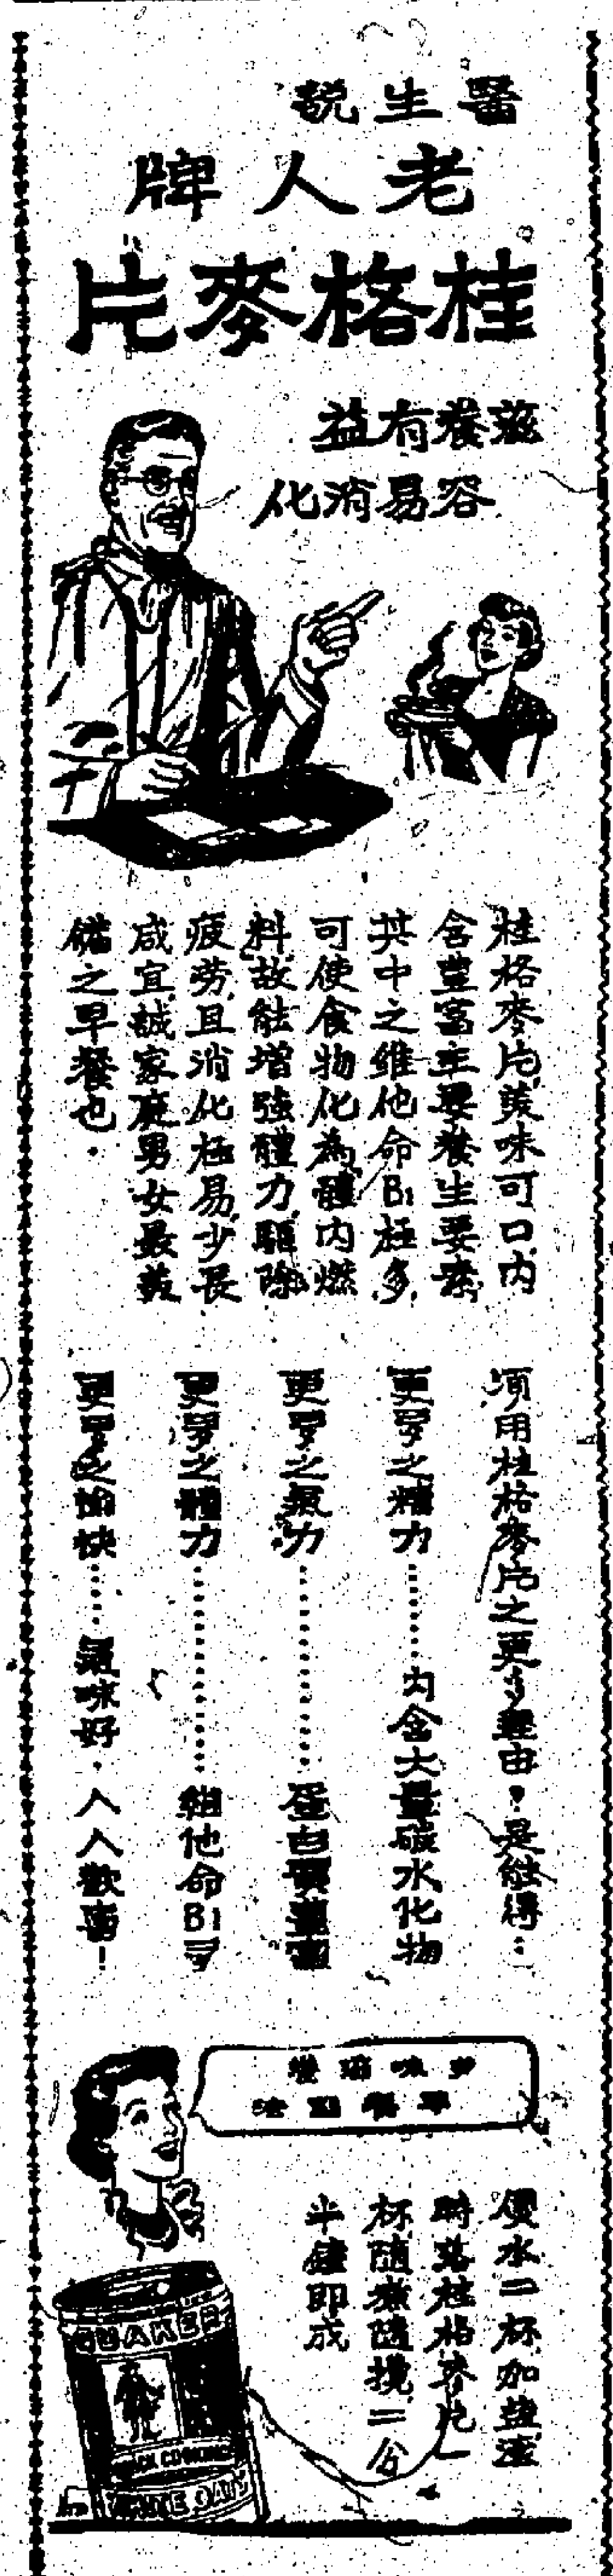 醫生説
老人牌
桂格麥片
滋養有益
容易消化
桂格麥片美味可口内
含豐富主要養生要素
其中之維他命B1極多
可使食物化為體内燃
料故能增強體力驅除
疲劳且消化極易少長
咸宜誠家庭男女最美
備之早餐也．
須用桂格麥片之更多理由，是能得…
更多之精力………内含大量碳水化物
更多之氣力………蛋白質豐富
更多之體力………維他命B1多
更多之愉快……滋味好．人人歡喜！
早餐
煲水二杯加鹽滚
時落桂格麥片一
杯随煮随攪二分
半鐘即成
QUAKER
QUICK COOKING
WHITE OATS